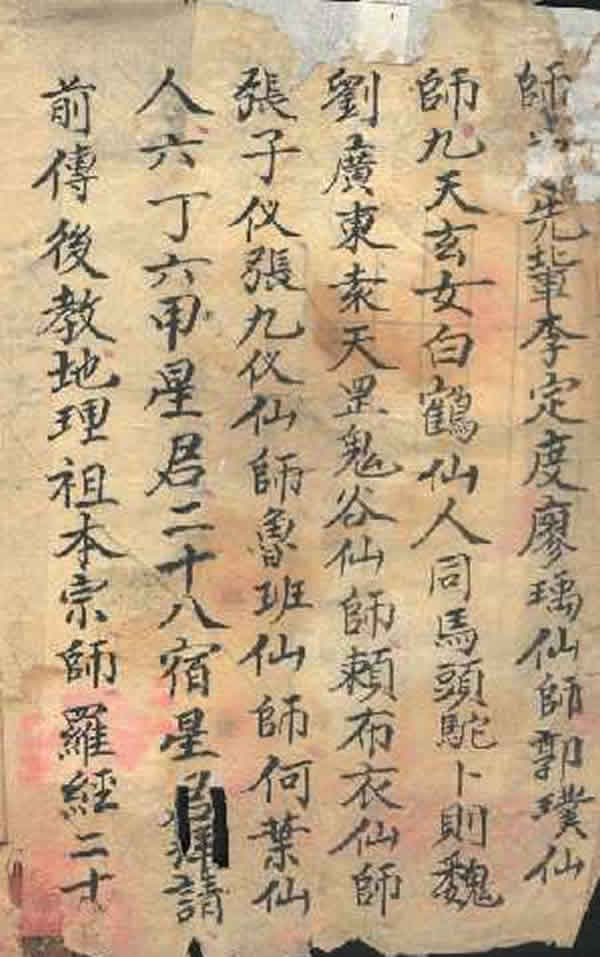 師先輩李定度廖瑀仙師郭璞仙
師九天玄女白鶴仙人同馬頭駝卜則魏
劉廣東袁天罡鬼谷仙師賴布衣仙師
張子仪張九仪仙師魯班仙師何葉仙
人六丁六甲星君二十八宿星君拜請
前傳後教地理祖本宗師羅經二十